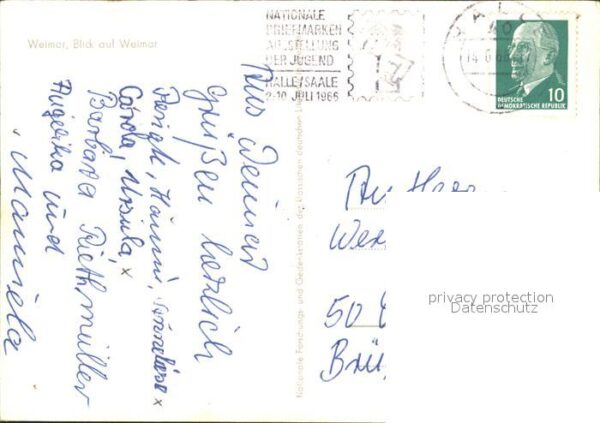 Weimar, Blick auf Weimar
NATIONALE
BRIEFMARKEN
AUSSTELLUNG
DER JUGEND
HALLE/SAALE
2-10. JULI 1966
HALLE
DEUTSCHE
DEMOKRATISCHE REPUBLIK
10
Aus Weimar
grüßen herzlich
Hanni,
Ursula, x
Barbara Riethmüller
Angelika und
Manuela
Nationale Forschungs- und Gedenkstätten der klassischen deutschen
An
Wer
50
Brü
privacy protection
Datenschutz